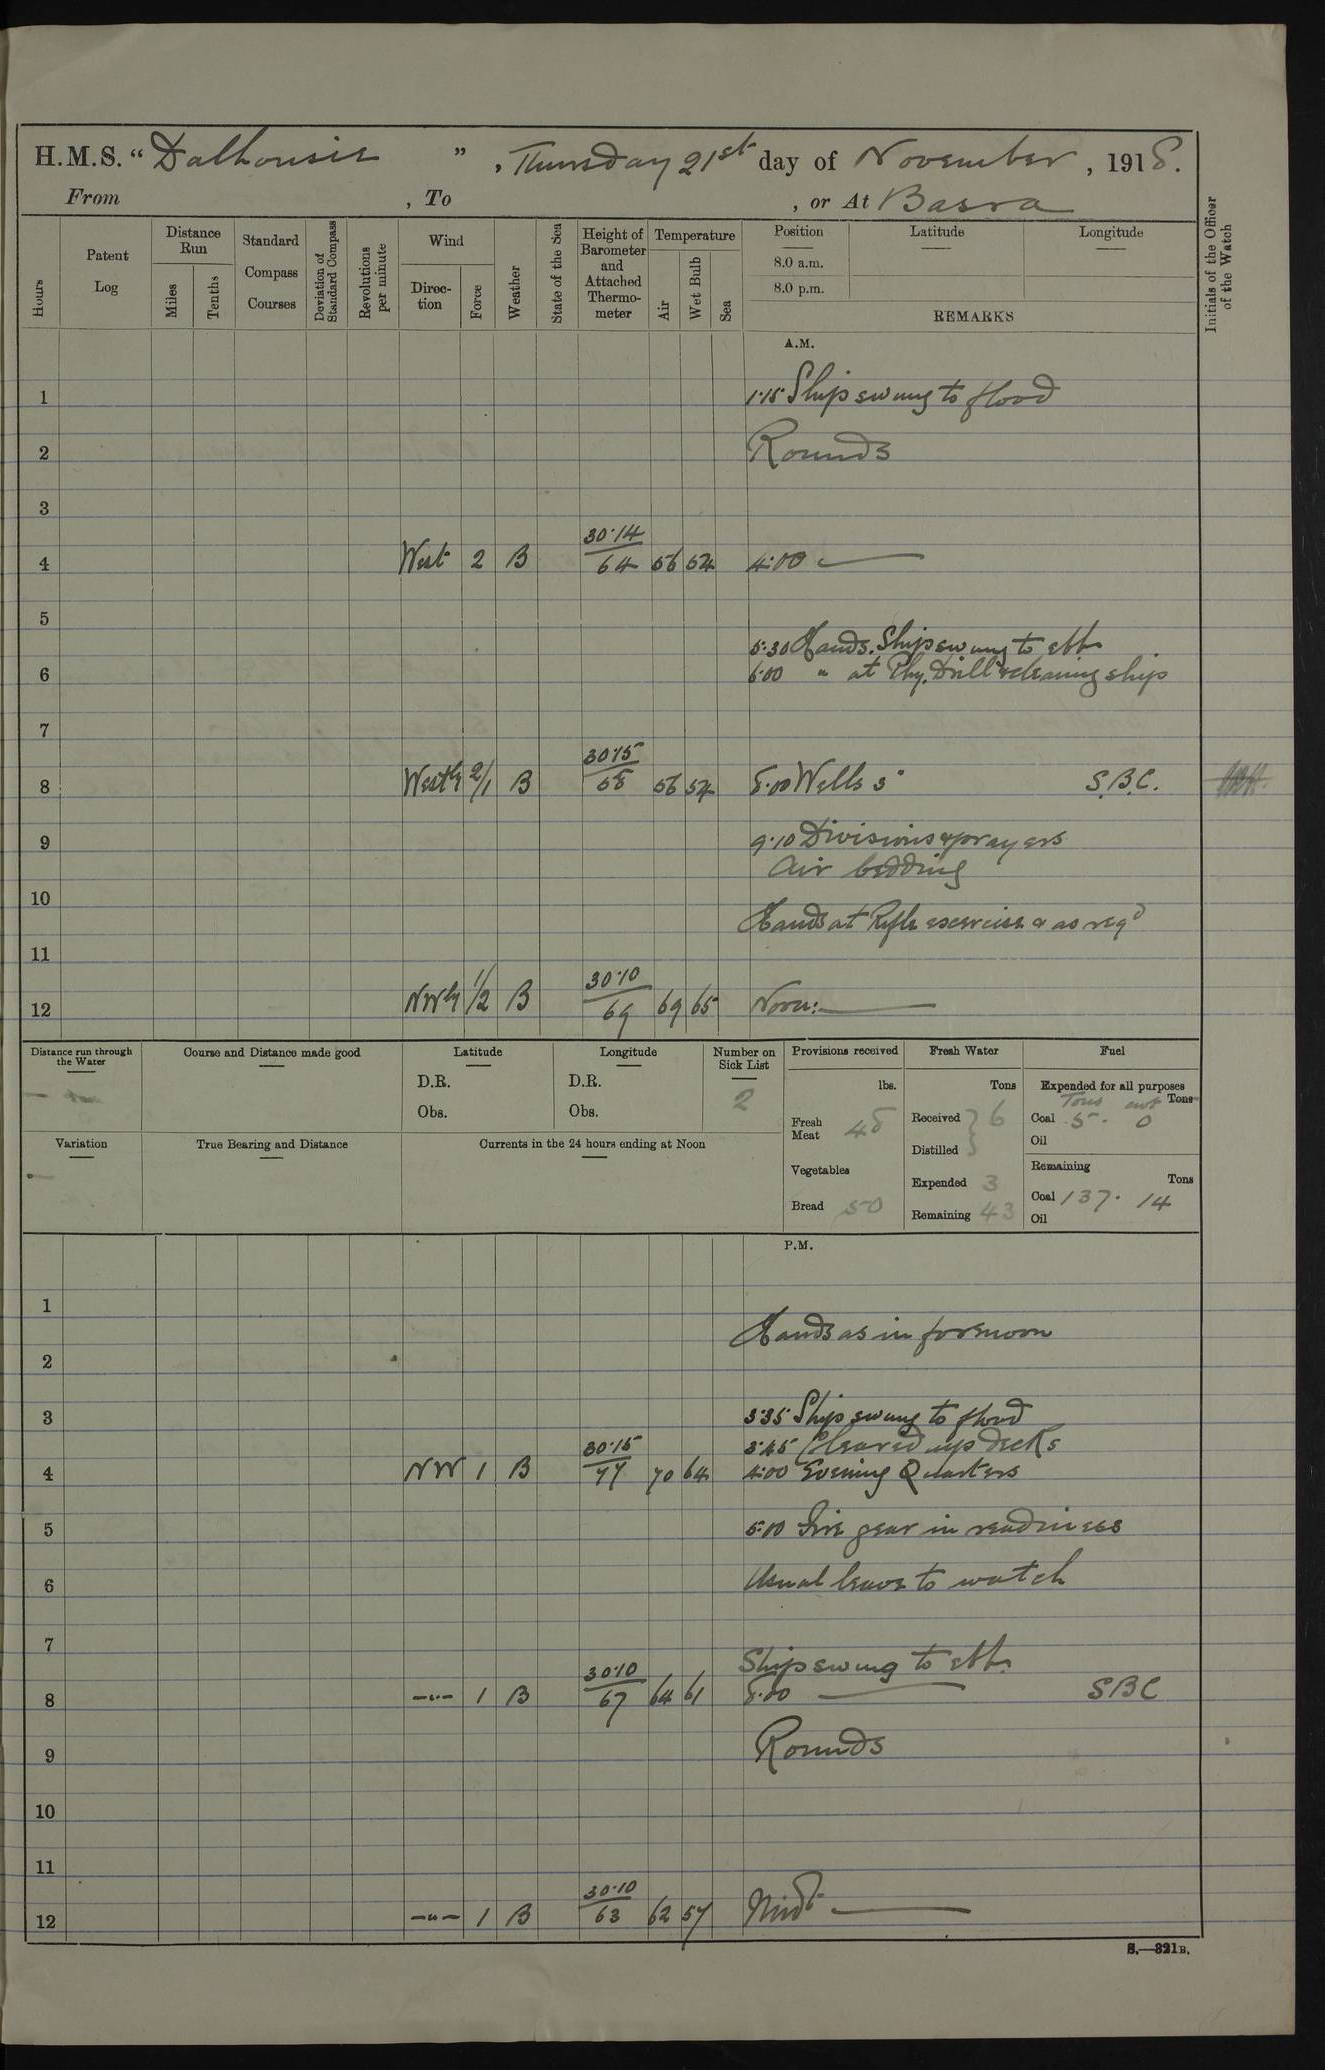 H.M.S. “Dalhousie”, Thursday 21st day of November, 1918.
From , To , or At Basra
Hours
Patent Log
Distance Run
Miles
Tenths
Standard Compass Courses
Deviation of Standard Compass
Revolutions per minute
Wind
Direction
Force
Weather
State of the Sea
Height of Barometer and Attached Thermometer
Temperature
Air
Wet Bulb
Sea
Position Latitude Longitude
8.0 a.m.
8.0 p.m.
REMARKS
Initials of the Officer of the Watch
A.M.
1 1·15 Ship swung to flood
2 Rounds
3
30·14
4 West 2 B 64 56 54 4·00
5
5·30 Hands. Ship swung to ebb
6 6·00 " at Phy. Drill & cleaning ship
7
30·15
8 Westly 2/1 B 58 56 54 8·00 Wells 3" S.B.C.
9 9·10 Divisions & prayers
Air bedding
10
Hands at Rifle exercise & as reqd
11
30·10
12 NWly 1/2 B 69 69 65 Noon:
Distance run through the Water
Course and Distance made good
Latitude
D.R.
Obs.
Longitude
D.R.
Obs.
Number on Sick List
2
Provisions received
lbs.
Fresh Meat 48
Vegetables
Bread 50
Fresh Water
Tons
Received } 6
Distilled
Expended 3
Remaining 43
Fuel
Expended for all purposes
Tons cwt Tons
Coal 5 · 0
Oil
Remaining
Tons
Coal 137 · 14
Oil
Variation
True Bearing and Distance
Currents in the 24 hours ending at Noon
P.M.
1
Hands as in forenoon
2
3 3·35 Ship swung to flood
30·15 3·45 Cleared up decks
4 NW 1 B 77 70 64 4·00 Evening Quarters
5 5·00 Fire gear in readiness
6 Usual leave to watch
7
Ship swung to ebb.
30·10
8 -"- 1 B 67 64 61 8·00 SBC
9 Rounds
10
11
30·10
12 -"- 1 B 63 62 57 Midt
S.—321B.